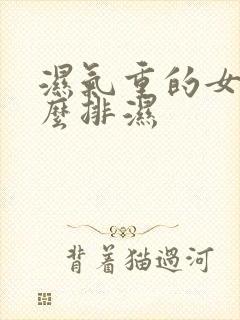 濕氣重的女
麼排濕
背着猫過河